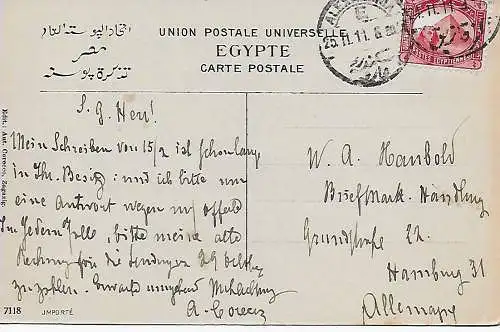 اتحاد البوستة العام
مصر
تذكرة بوستة
UNION POSTALE UNIVERSELLE
EGYPTE
CARTE POSTALE
25.11.11.
S. g. Herr!
Mein Schreiben von 15/2 ist schon lange
in Ihr. Besitz und ich bitte um
eine Antwort wegen m/ offerte
Im Jedem Falle, bitte meine alte
Rechnung für die Sendungen 29 Octbr
zu zahlen. Erwarte umgehend
A. Corecz
W. A. Haubold
Briefmark. Handlung
Grundstrasse 22.
Hamburg 31
Allemagne
Edit.: Aut. Corecz, Zagazig.
7118 IMPORTÉ